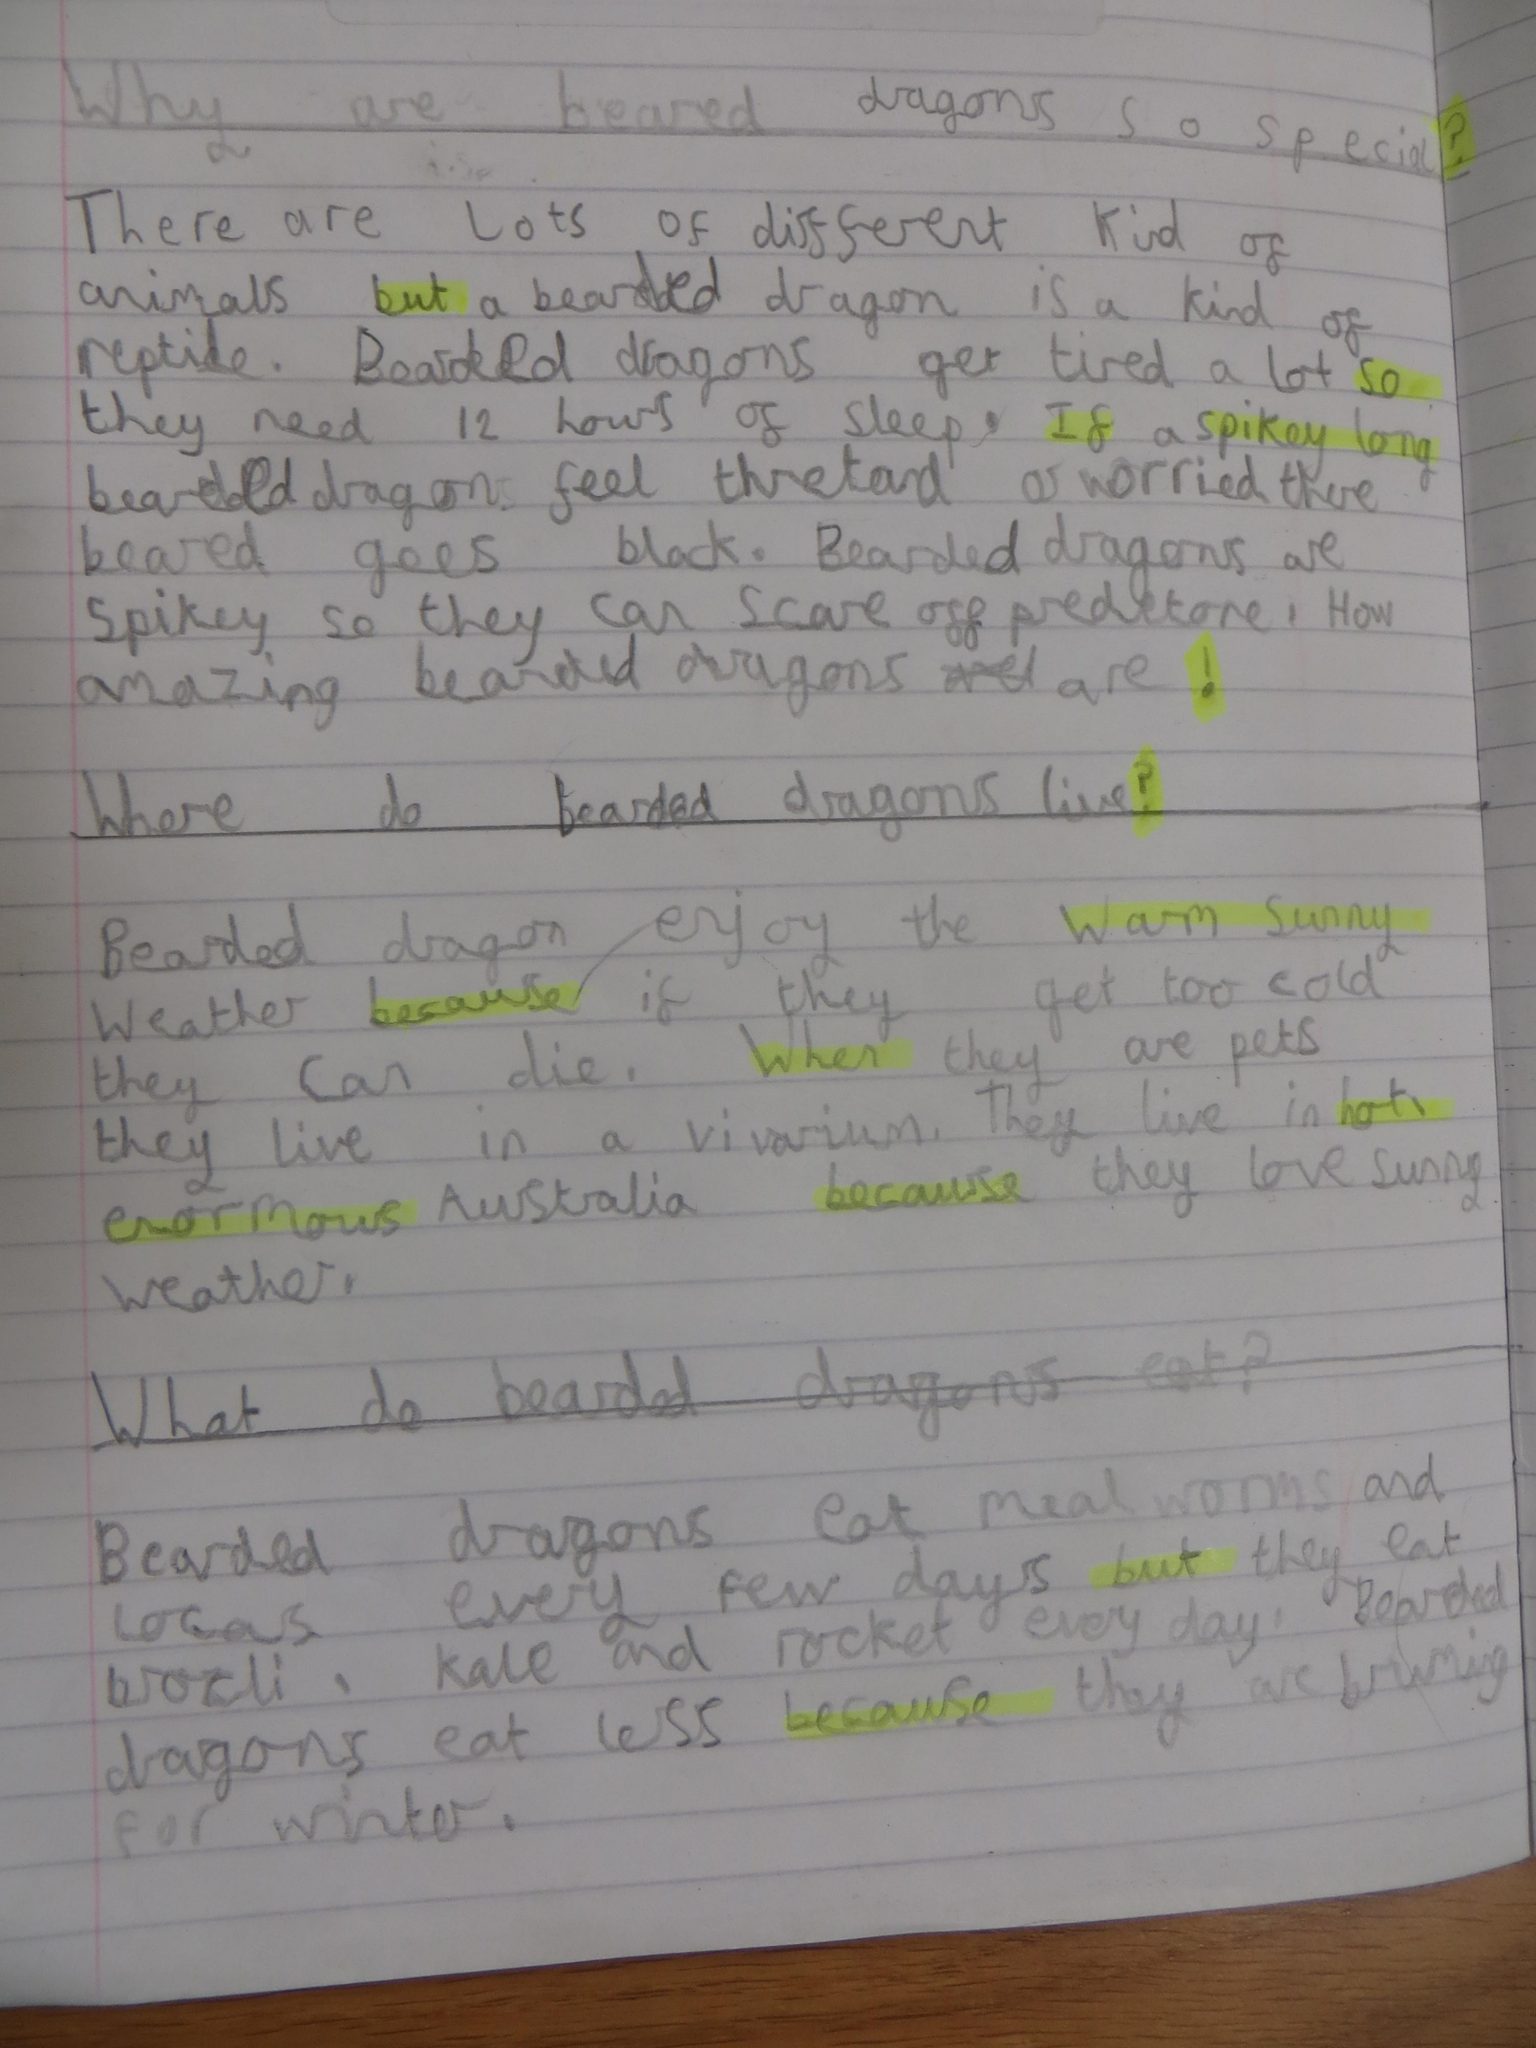 Why are beared dragons so special?
There are Lots of different Kid of
animals but a bearded dragon is a kind of
reptile. Bearded dragons get tired a lot so
they need 12 hours of sleep. If a spikey long
bearded dragon feel thretard or worried there
beared goes black. Bearded dragons are
Spikey so they can scare off predetore. How
amazing bearded dragons are!
Where do bearded dragons live?
Bearded dragon enjoy the warm sunny
weather because if they get too cold
they can die. When they are pets
they live in a vivarium. They live in hot,
enormous Australia because they love sunny
weather.
What do bearded dragons eat?
Bearded dragons eat meal worms and
Locas every few days but they eat
brocli, kale and rocket every day. Bearded
dragons eat less because they are bruming
for winter.